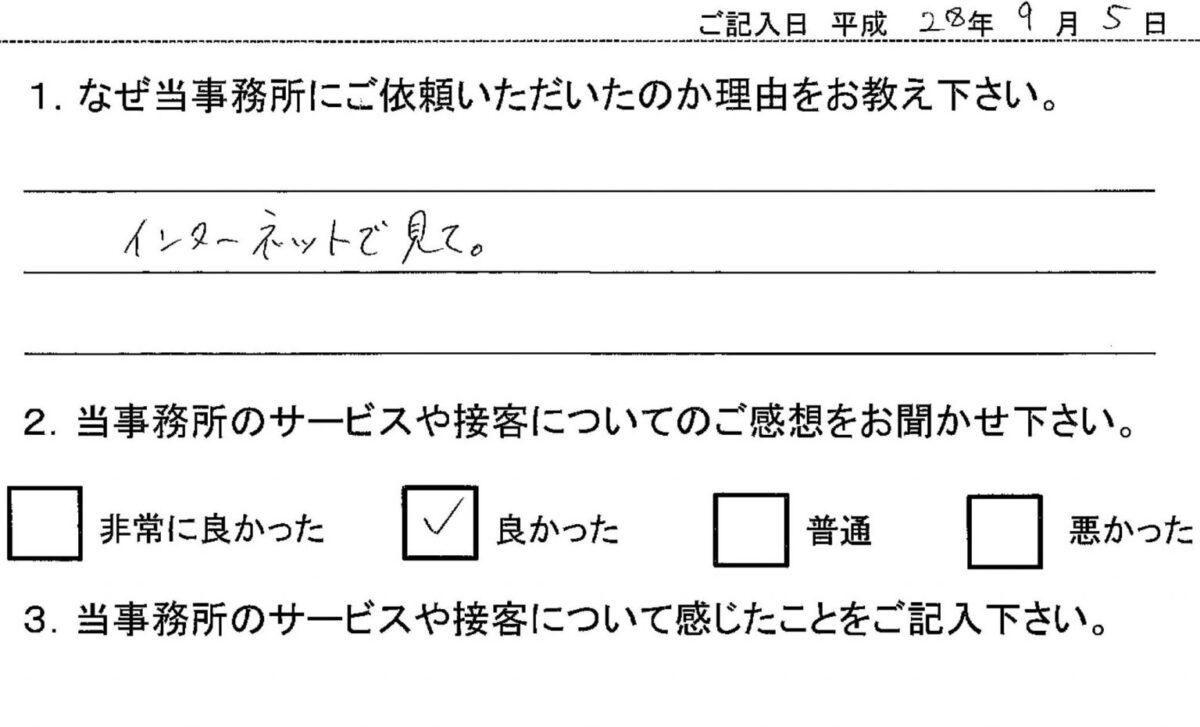 ご記入日 平成 28年 9月 5日
1. なぜ当事務所にご依頼いただいたのか理由をお教え下さい。
インターネットで見て。
2. 当事務所のサービスや接客についてのご感想をお聞かせ下さい。
非常に良かった 良かった 普通 悪かった
3. 当事務所のサービスや接客について感じたことをご記入下さい。